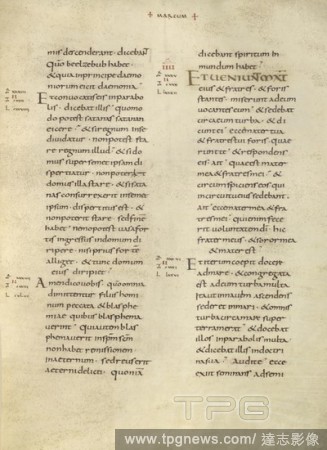 MARCUM
mis descenderant dicebant
Qūo beelzebub habet
& quia in principe daemo
niorum eicit daemonia
Et conuocatis eis in parabo
lis dicebat illis quomo
do potest satanas satanan
eicere & si regnum in se
diuidatur non potest sta
re regnum illud & si do
mus super semet ipsam di
spertiatur non poterit
domus illa stare & si sata
nas consurrexerit in semet
ipsum dispertitus est &
non poterit stare sed finē
habet nemo potest uasa for
tis ingressus in domum di
ripere nisi prius fortē
alliget & tunc domum
eius diripiet
Amen dico uobis qūo omnia
dimittentur filiis homi
num peccata & blasphe
miae quibus blasphema
uerint qui autem blas
phemauerit in spm scm
non habet remissionem
in aeternum sed reus erit
aeterni delicti quoniā
dicebant spiritum in
mundum habet
ET UENIUNT MAT
eius & fratres & foris
stantes miserunt ad eum
uocantes eum & sedebat
circa eum turba & di
cunt ei ecce mater tua
& fratres tui foris quae
runt te & respondens
eis ait quae est mater
mea & fratres mei &
circumspiciens eos qui
in circuitu eius sedebant
ait ecce mater mea & fra
tres mei qui enim fece
rit uoluntatem di hic
frater meus & soror mea
& mater est
Et iterum coepit docere
ad mare & congregata
est ad eum turba multa
ita ut in nauim ascendens
sederet in mari & omnis
turba circa mare super
terram erat & docebat
illos in parabolis multa
& dicebat illis in doctri
na sua Audite ecce
exiit seminans ad semi
TPG
www.tpgnews.com/達志影像